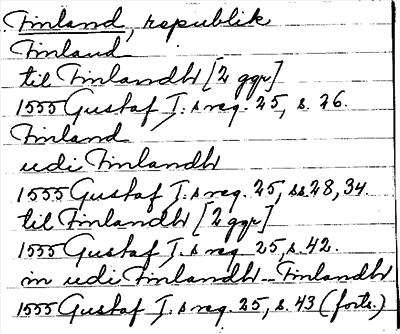 Finland, republik
Finland
til Finlandh [2 ggr]
1555 Gustaf I:s reg. 25, s. 26.
Finland
udi Finlandh
1555 Gustaf I:s reg. 25, ss 28, 34.
til Finlandh [2 ggr]
1555 Gustaf I:s reg 25, s. 42.
in udi Finlandh – Finlandh
1555 Gustaf I:s reg. 25, s. 43 (forts.)